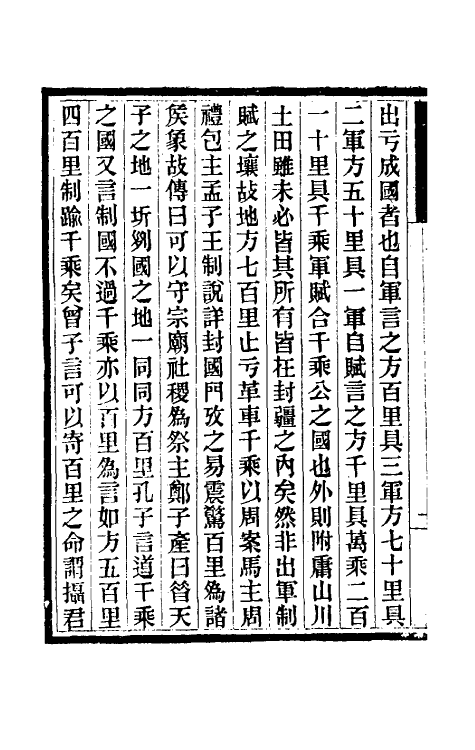 出亏成國者也自軍言之方百里具三軍方七十里具
二軍方五十里具一軍自賦言之方千里具萬乘二百
一十里具千乘軍賦合千乘公之國也外則附庸山川
土田雖未必皆其所有皆在封疆之內矣然非出軍制
賦之壤故地方七百里止亏革車千乘以周案馬主周
禮包主孟子王制說詳封國門攷之易震驚百里為諸
矦象故傳曰可以守宗廟社稷為祭主鄭子產曰昔天
子之地一圻列國之地一同同方百里孔子言道千乘
之國又言制國不過千乘亦以百里為言如方五百里
四百里制踰千乘矣曾子言可以寄百里之命謂攝君